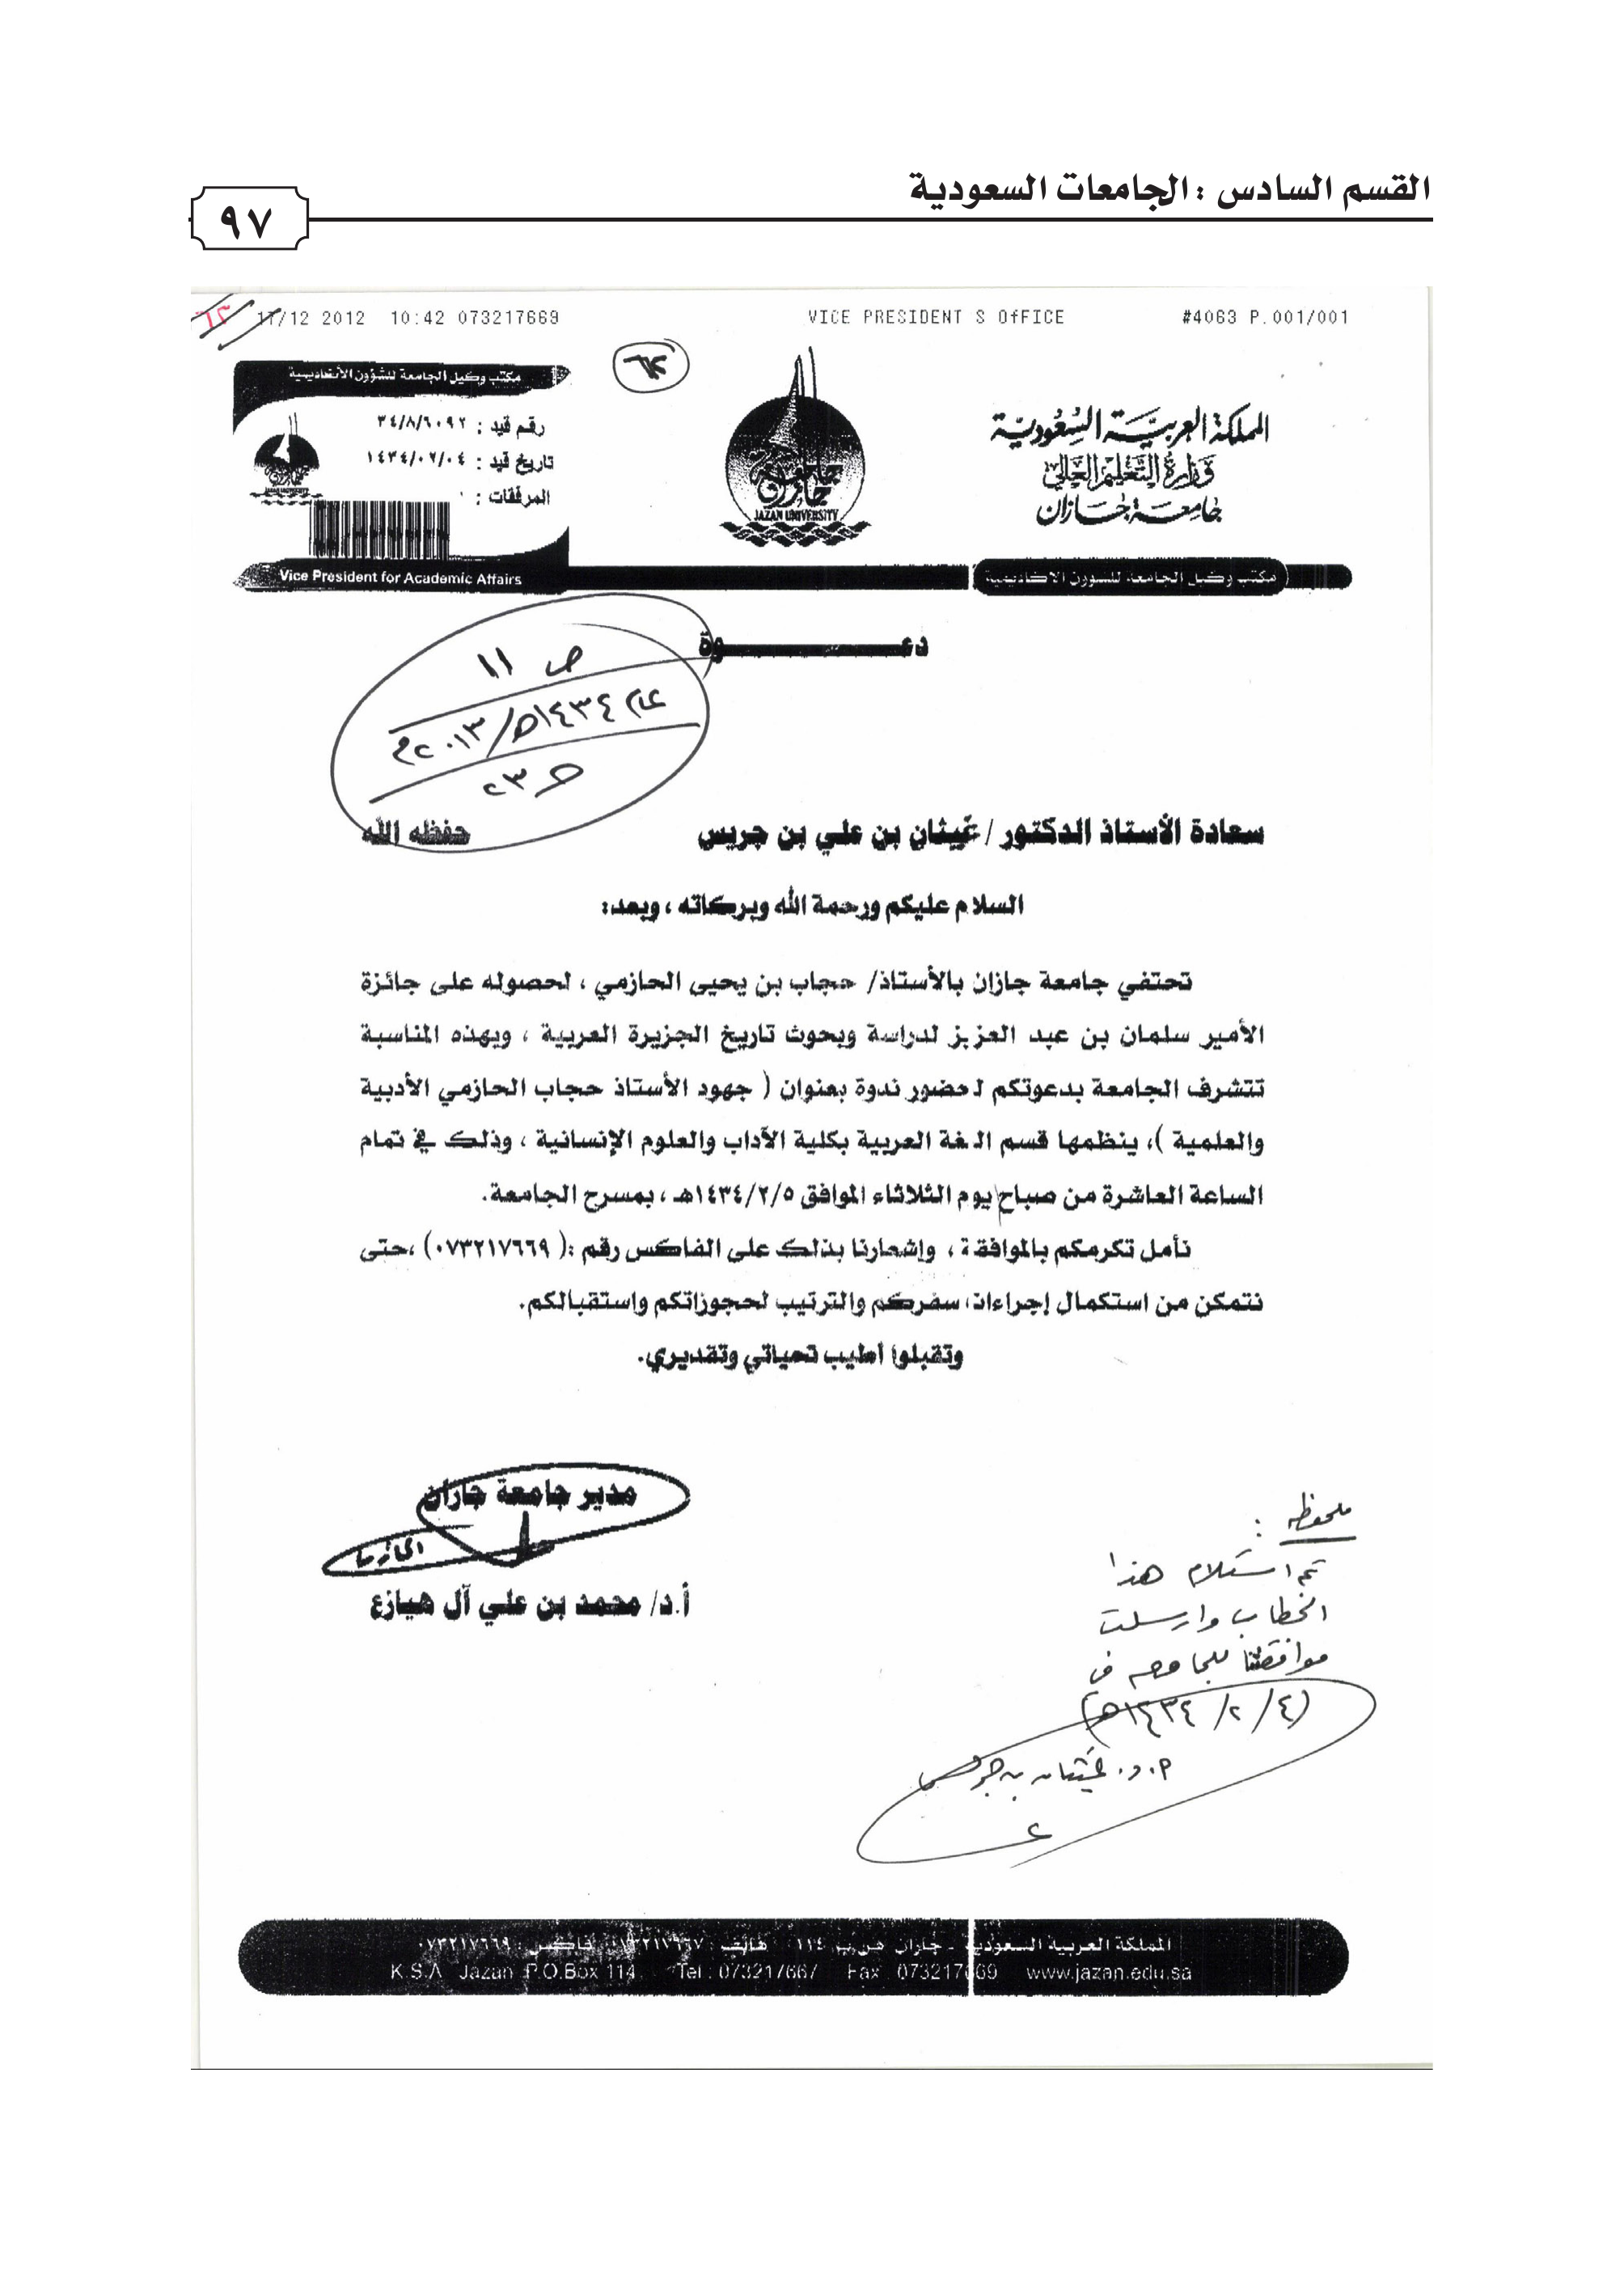 القسم السادس : الجامعات السعودية
٩٧
17/12 2012 10:42 073217669 VICE PRESIDENT S OfFICE #4063 P.001/001
المملكة العربية السعودية
وزارة التعليم العالي
جامعة جازان
جامعة جازان
JAZAN UNIVERSITY
مكتب وكيل الجامعة للشؤون الأكاديمية
رقم قيد : ٣٤/٨/٦٠٩٢
تاريخ قيد : ١٤٣٤/٠٢/٠٤
المرفقات :
Vice President for Academic Affairs
مكتب وكيل الجامعة للشؤون الاكاديمية
دعـــــــــوة
ص ١١
عام ١٤٣٤هـ/٢٠١٣م
ص ٢٣
سعادة الأستاذ الدكتور / غيثان بن علي بن جريس حفظه الله
السلام عليكم ورحمة الله وبركاته ، وبعد:
تحتفي جامعة جازان بالأستاذ/ حجاب بن يحيى الحازمي ، لحصوله على جائزة
الأمير سلمان بن عبد العزيز لدراسة وبحوث تاريخ الجزيرة العربية ، وبهذه المناسبة
تتشرف الجامعة بدعوتكم لحضور ندوة بعنوان ( جهود الأستاذ حجاب الحازمي الأدبية
والعلمية )، ينظمها قسم اللغة العربية بكلية الآداب والعلوم الإنسانية ، وذلك في تمام
الساعة العاشرة من صباح يوم الثلاثاء الموافق ١٤٣٤/٢/٥هـ ، بمسرح الجامعة.
نأمل تكرمكم بالموافقة ، وإشعارنا بذلك على الفاكس رقم :( ٠٧٣٢١٧٦٦٩) ،حتى
نتمكن من استكمال إجراءات سفركم والترتيب لحجوزاتكم واستقبالكم.
وتقبلوا أطيب تحياتي وتقديري.
مدير جامعة جازان
أ.د/ محمد بن علي آل هيازع
ملحوظة :
تم استلام هذا
الخطاب وارسلت
موافقتنا للجامعة في
(٤/ ٢/ ١٤٣٤هـ)
أ.د. غيثان بن جريس
المملكة العربية السعودية - جازان ص.ب ١١٤ هاتف : ٠٧٣٢١٧٦٦٧ فاكس : ٠٧٣٢١٧٦٦٩
K.S.A Jazan P.O.Box 114 Tel : 073217667 Fax 073217669 www.jazan.edu.sa